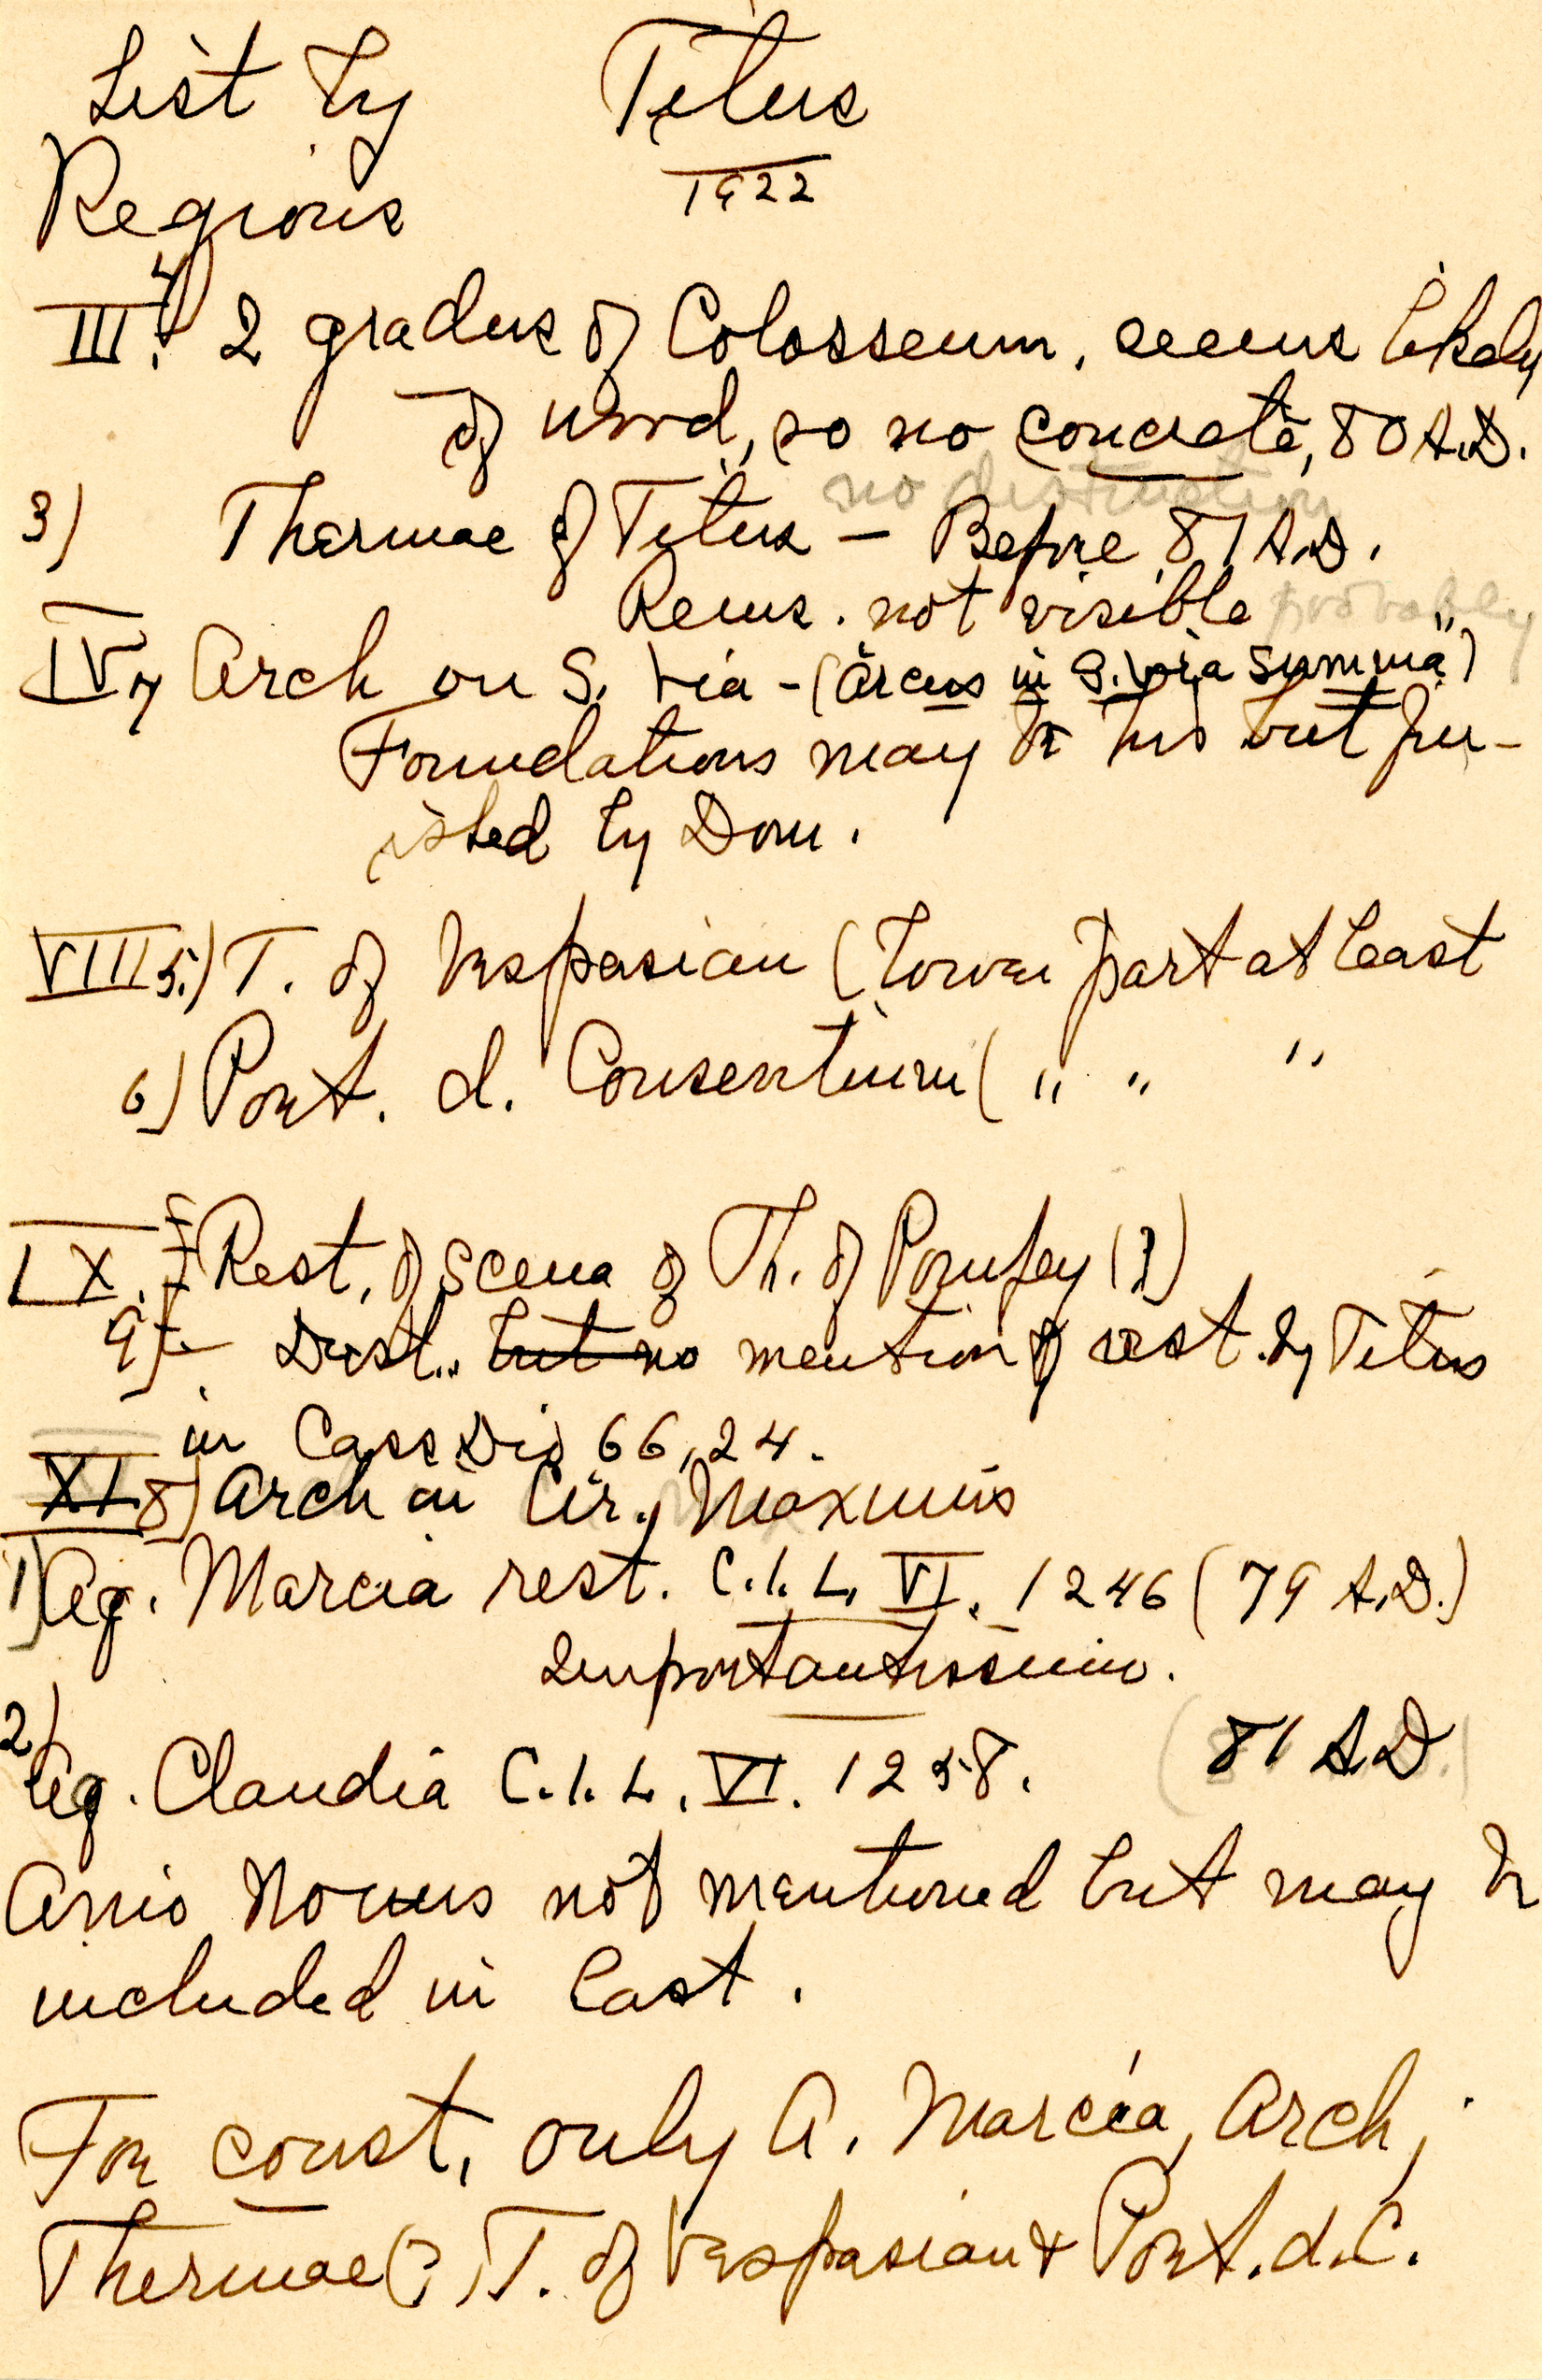 List by Titus
Regions 1922
III. 4) 2 gradus of Colosseum, seems likely
of wood, so no concrete, 80 A.D.
no distinction
3) Thermae of Titus — Before 81 A.D.
Rems. not visible probably
IV 7 Arch on S. Via - ("Arcus in S. Via Summa")
Foundations may be his but fin-
ished by Dom.
VIII 5.) T. of Vespasian (lower part at least
6) Port. d. Consentium ( " " "
IX. Rest. of Scena of Th. of Pompey (?)
9) Dest.. but no mention of rest. by Titus
in Cass Dio 66, 24.
XI. 8) Arch in Cir. Maximus
1) Aq. Marcia rest. C.I.L. VI. 1246 (79 A.D.)
Importantissimo.
2) Aq. Claudia C.I.L. VI. 1258. (81 A.D.)
Anio Novus not mentioned but may be
included in last.
For const. only A. Marcia, Arch,
Thermae (?), T. of Vespasian & Port. d. C.